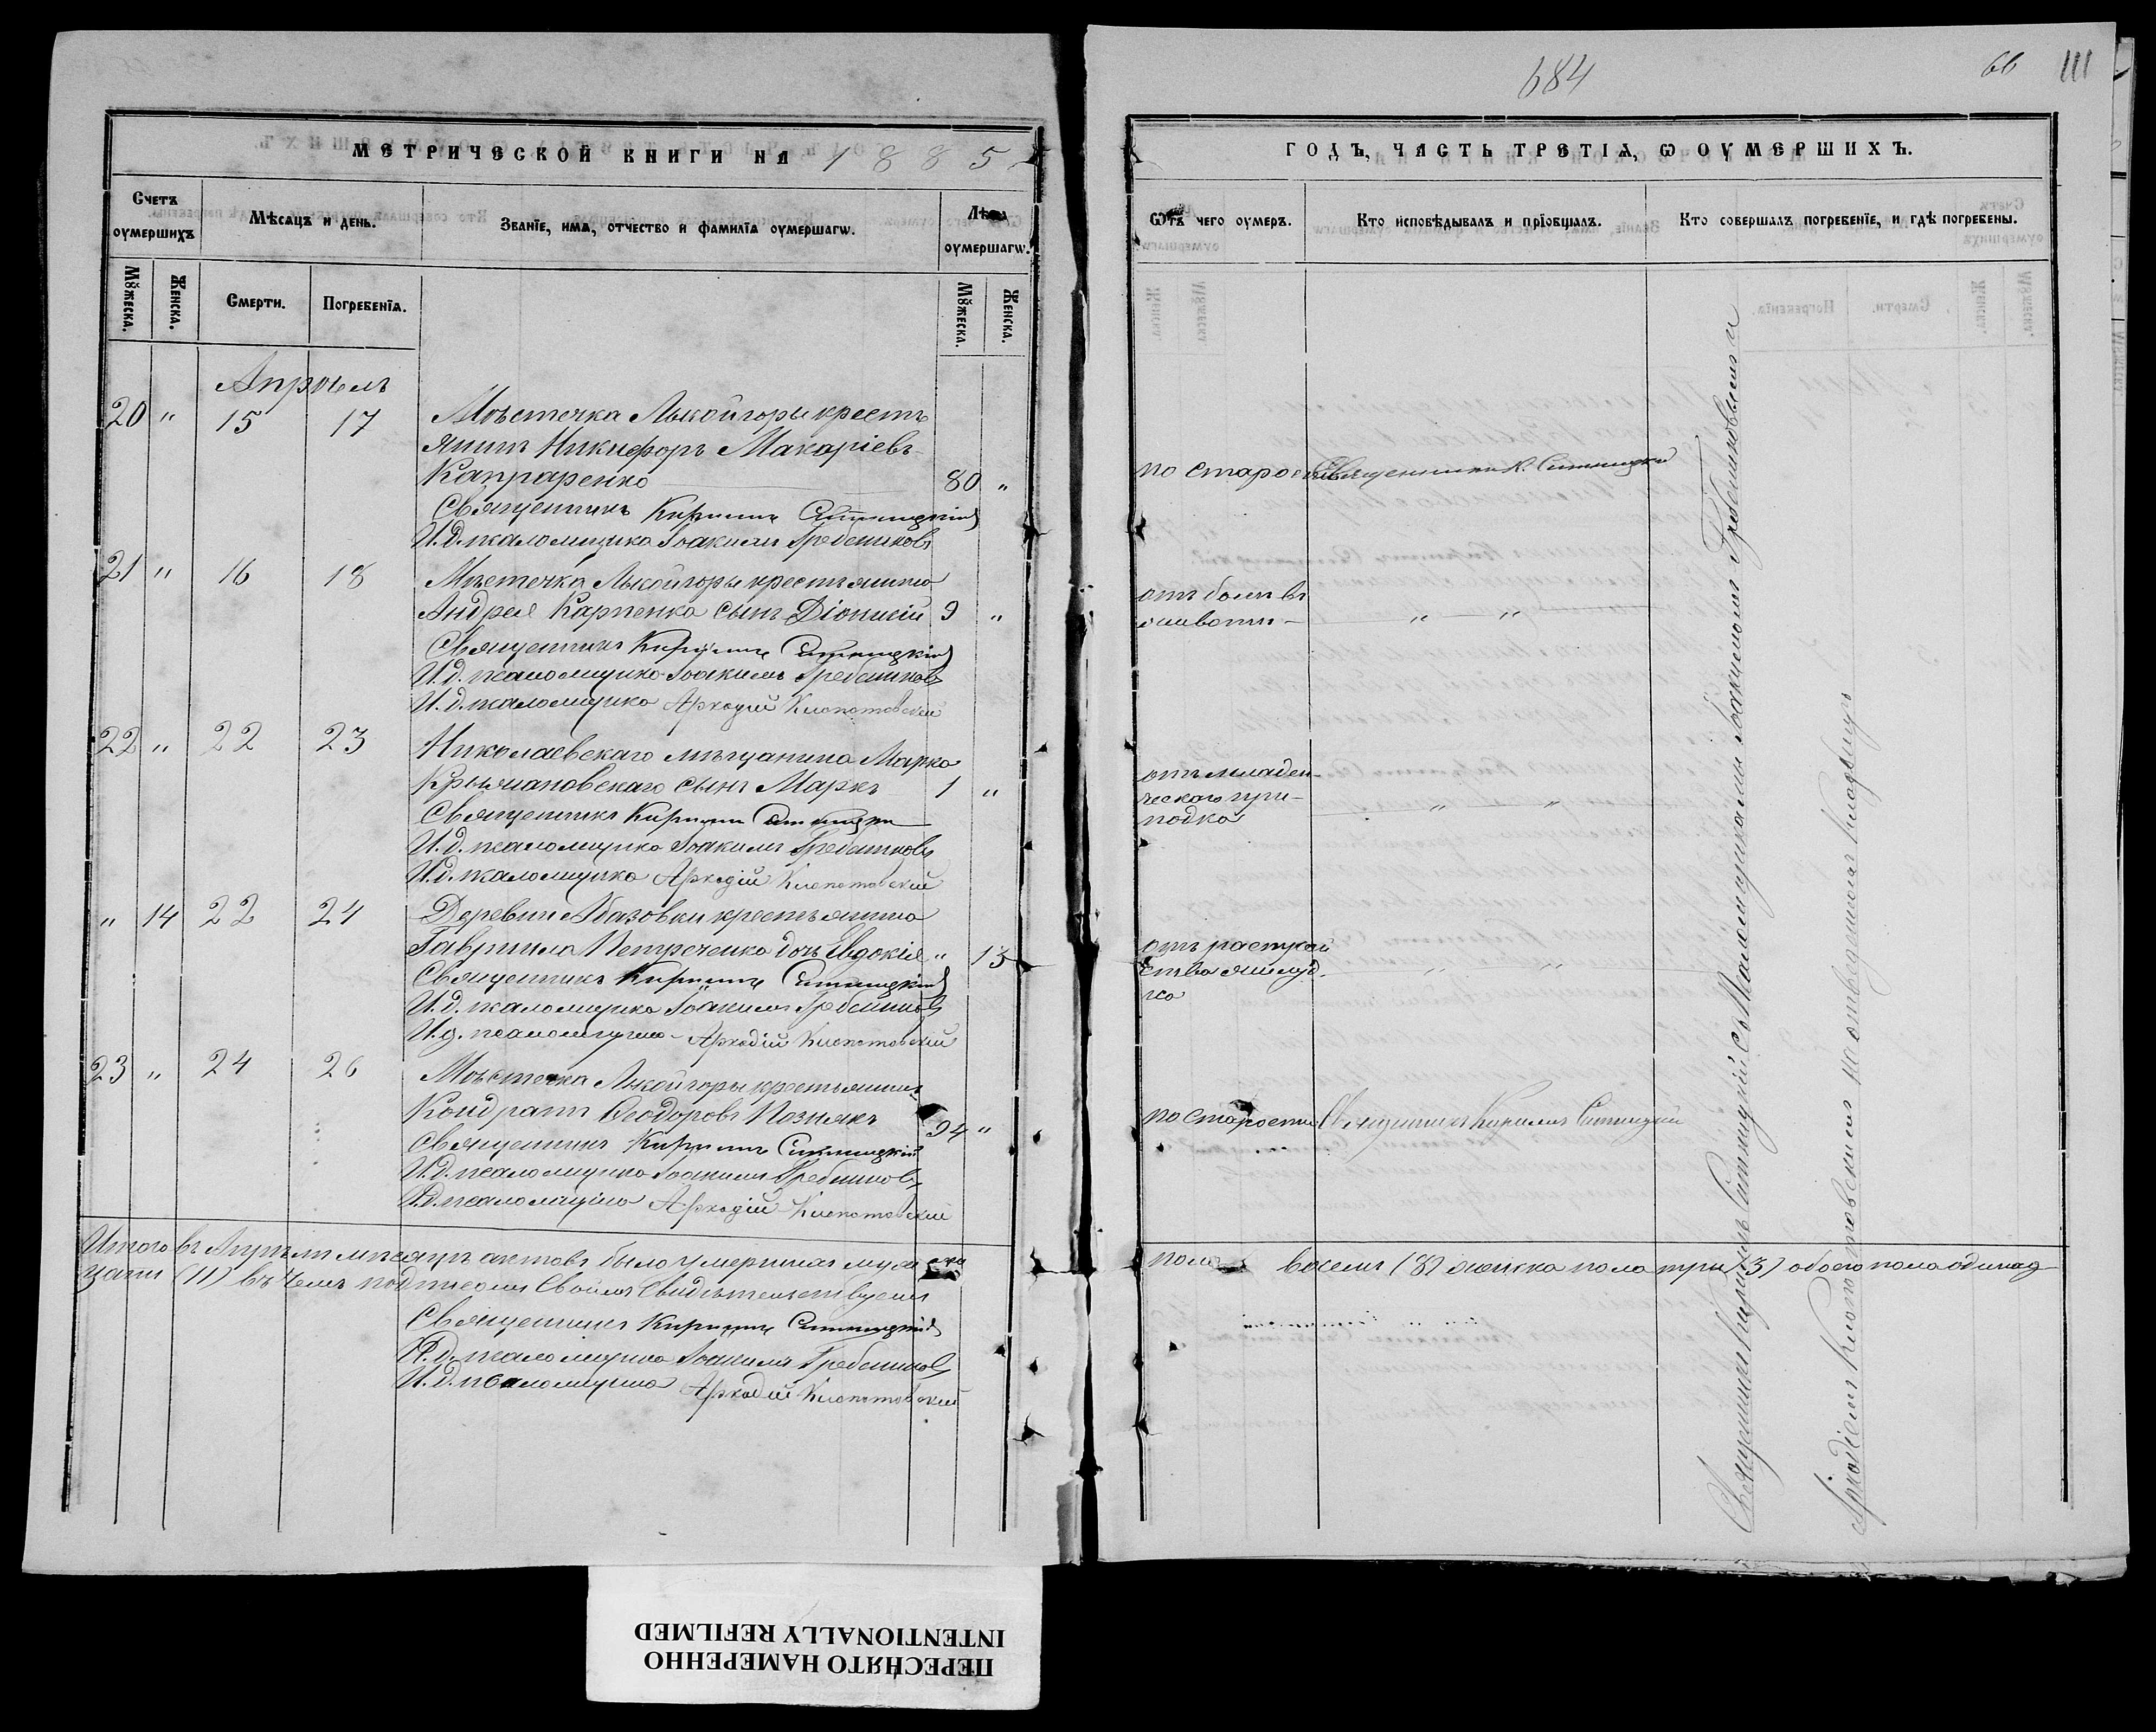 МЕТРИЧЕСКОЙ КНИГИ НА 1885
Счетъ оумершихъ
Мѣсяцъ и день.
Званїе, имя, отчество и фамилїа оумершагѡ.
Лѣта оумершагѡ.
Мꙋжеска.
Женска.
Смерти.
Погребенїа.
Мꙋжеска.
Женска.
Апрѣль
20 " 15 17 Мѣстечка Лысойгоры кресть
янинъ Никифоръ Макаріевъ
Капраренко 80 "
Священникъ Кириллъ Ситницкій
И. д. псаломщика Іоакимъ Гребенниковъ
21 " 16 18 Мѣстечка Лысойгоры крестьянина
Андрея Карпенка сынъ Діонисій 9 "
Священникъ Кириллъ Ситницкій
И. д. псаломщика Іоакимъ Гребенниковъ
И. д. псаломщика Аркадій Клопотовскій
22 " 22 23 Николаевскаго мѣщанина Марка
сынъ Маркъ 1 "
Священникъ Кириллъ Ситницкій
И. д. псаломщика Іоакимъ Гребенниковъ
И. д. псаломщика Аркадій Клопотовскій
" 14 22 24 Деревни Абазовки крестьянина
Гавриила Петреченка дочь Евдокія " 13
Священникъ Кириллъ Ситницкій
И. д. псаломщика Іоакимъ Гребенниковъ
И. д. псаломщика Аркадій Клопотовскій
23 " 24 26 Мѣстечка Лысойгоры крестьянинъ
Кондратъ Ѳеодоровъ Познякъ 94 "
Священникъ Кириллъ Ситницкій
И. д. псаломщика Іоакимъ Гребенниковъ
И. д. псаломщика Аркадій Клопотовскій
Итого въ Апрѣлѣ мѣсяцѣ актовъ было умершихъ мужеска
цати (11) въ чемъ подписомъ своимъ свидѣтельствуемъ
Священникъ Кириллъ Ситницкій
И. д. псаломщика Іоакимъ Гребенниковъ
И. д. псаломщика Аркадій Клопотовскій
684
66
111
ГОДЪ, ЧАСТЬ ТРЕТІѦ, Ѡ ОУМЕРШИХЪ.
Ѿтъ чего оумеръ.
Кто исповѣдывалъ и прїобщалъ.
Кто совершалъ погребенїе, и гдѣ погребены.
по старости Священникъ К. Ситницкій
отъ боли въ
животѣ " "
отъ младен-
ческаго при-
падка " "
отъ
" "
по старости Священникъ Кириллъ Ситницкій
Священникъ Кириллъ Ситницкій съ псаломщиками Іоакимомъ Гребенниковымъ и
Аркадіемъ Клопотовскимъ на кладбищѣ
пола восемь (8) женска пола три (3) обоего пола одинад-
ПЕРЕСНЯТО НАМЕРЕННО
INTENTIONALLY REFILMED